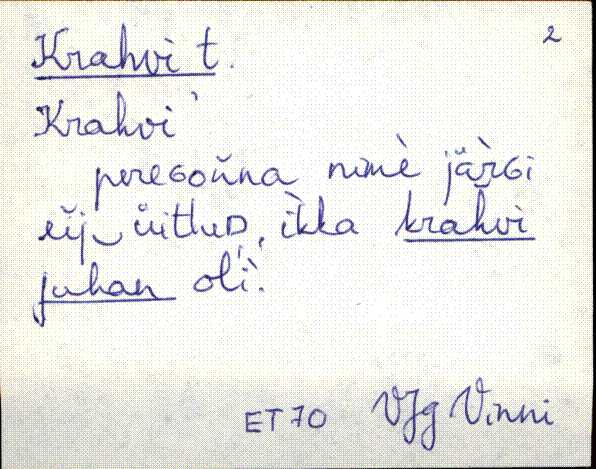 2
Krahvi t.
Krahvi'
pereɢoǹna nimè jär̀ɢi
eìj üitluᴅ, ìkka krahvi
juhan olì.
ET 70 VJg Vinni